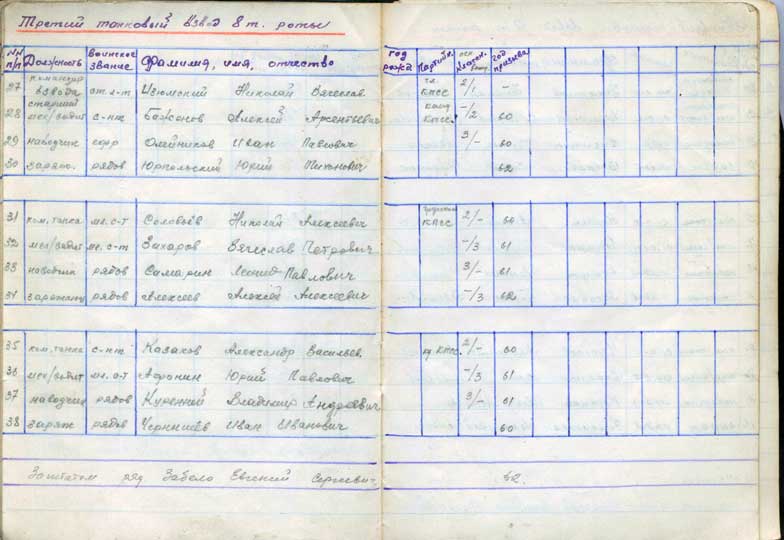 Третий танковый взвод 8 т. роты
NN п/п Должность воинское звание Фамилия, имя, отчество год рожд Партийн. классн. год призыва
27 командир взвода ст. л-т Николай Вячеслав чл. КПСС 2/1 -
28 старший мех/водит с-нт Алексей Арсентьевич канд КПСС. -/2 60
29 наводчик ефр Олейников Иван Павлович 3/- 60
30 заряж. рядов Юрпольский Юрий Тихонович 62
31 ком. танка мл. с-т Соловьёв Николай Алексеевич КПСС 2/- 60
32 мех/водит мл. с-т Захаров Вячеслав Петрович -/3 61
33 наводчик рядов Самарин Леонид Павлович 3/- 61
34 заряжающ рядов Алексеев Алексей Алексеевич -/3 62
35 ком. танка с-нт Казаков Александр Васильев. КПСС. 2/- 60
36 мех/водит мл. с-т Афонин Юрий Павлович -/3 61
37 наводчик рядов Куренной Владимир Андреевич 3/- 61
38 заряж рядов Чернышёв Иван Иванович 60
Заштатом ряд Забело Евгений Сергеевич 62.